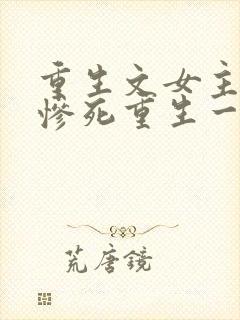 重生文女主
惨死重生一
荒唐镜